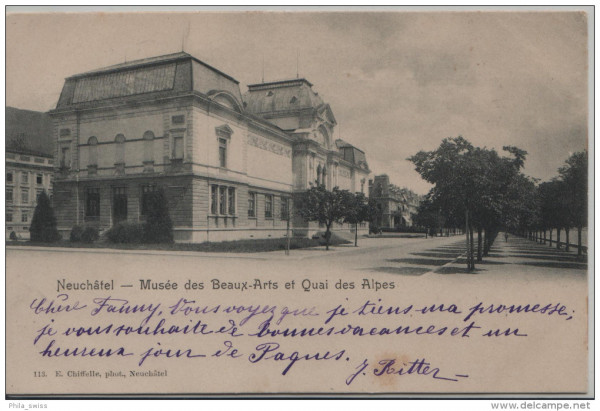 Neuchâtel — Musée des Beaux-Arts et Quai des Alpes
Chère Fanny, Vous voyez que je tiens ma promesse;
je vous souhaite de bonnes vacances et un
heureux jour de Paques.
J. Ritter
113. E. Chiffelle, phot., Neuchâtel
Phila_swiss
© www.delcampe.net